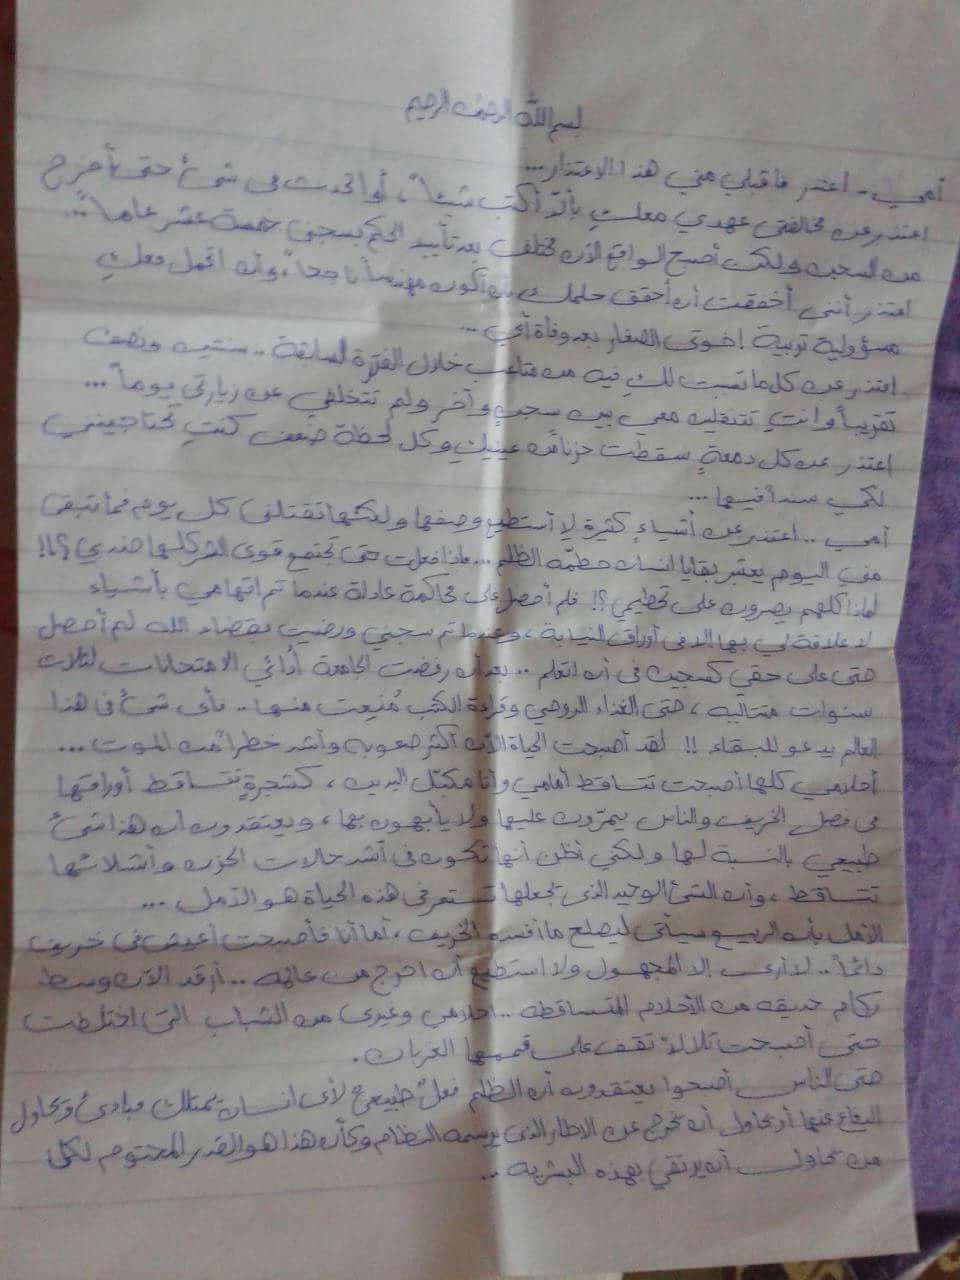 بسم الله الرحمن الرحيم
أمي .. اعتذر فاقبلي مني هذا الاعتذار...
اعتذر عن مخالفتي عهدي معكِ بألّا أكتب شيئاً، أو اتحدث فى شئ حتى أخرج
من السجن ولكن أصبح الواقع الآن مختلف بعد تأييد الحكم بسجني خمسة عشر عاماً...
اعتذر أنني أخفقت أن أحقق حلمك بأن أكون مهندساً ناجحاً، وأن اتحمل معكِ
مسؤولية تربية إخوتى الصغار بعد وفاة أبي ...
اعتذر عن كل ما تسببت لكِ فيه من متاعب خلال الفترة السابقة .. سنتين ونصف
تقريباً وانتِ تتنقلين معي بين سجنٍ وآخر ولم تتخلفي عن زيارتي يوماً...
اعتذر عن كل دمعةٍ سقطت حزناً من عينيكِ وكل لحظة ضعف كنتِ تحتاجينني
لكي سنداً فيها ...
أمي .. اعتذر عن أشياءٍ كثيرة لا أستطيع وصفها ولكنها تقتلنى كل يوم فما تبقى
مني اليوم يعتبر بقايا انسان حطمّه الظلم ... ماذا فعلت حتى تجتمع قوى الشر كلها ضدي ؟!!
لماذا كلهم يصرون على تحطيمي ؟! فلم أحصل على محاكمة عادلة عندما تم اتهامي بأشياء
لا علاقة لي بها الا فى أوراق النيابة ، وعندما تم سجني ورضيت بقضاء الله لم أحصل
حتى على حقي كسجين فى أن اتعلم .. بعد أن رفضت الجامعة أدائي الامتحانات لثلاث
سنوات متتاليه ، حتى الغذاء الروحي وقراءة الكتب مُنعت منها .. فأى شئ فى هذا
العالم يدعو للبقاء !! لقد أصبحت الحياة الآن أكثر صعوبه وأشد خطراً من الموت ...
أحلامي كلها أصبحت تتساقط أمامي وأنا مكبّل اليدين ، كشجرةٍ تتساقط أوراقها
فى فصل الخريف والناس يمرّون عليها ولا يأبهون بها ، ويعتقدون أن هذا شئ
طبيعي بالنسبة لها ولكني أظن أنها تكون فى أشد حالات الحزن وأشلائها
تتساقط ، وأن الشئ الوحيد الذى يجعلها تستمر فى هذه الحياة هو الأمل ...
الأمل بأن الربيع سيأتى ليصلح ما أفسده الخريف ، أما أنا فأصبحت أعيش فى خريف
دائماً .. لا أرى إلا المجهول ولا استطيع أن اخرج من عالمه .. أرقد الآن وسط
ركام حديقه من الأحلام المتساقطه .. احلامى وغيرى من الشباب التى اختلطت
حتى أصبحت تلالاً تقف على قممها الغربان .
حتى الناس أصبحوا يعتقدون أن الظلم فعلٌ طبيعىٌ لأى انسان يمتلك مبادئ ويحاول
الدفاع عنها أو يحاول أن يخرج عن الاطار الذى يرسمه النظام وكأن هذا هو القدر المحتوم لكل
من يحاول أن يرتقي بهذه البشريه ...